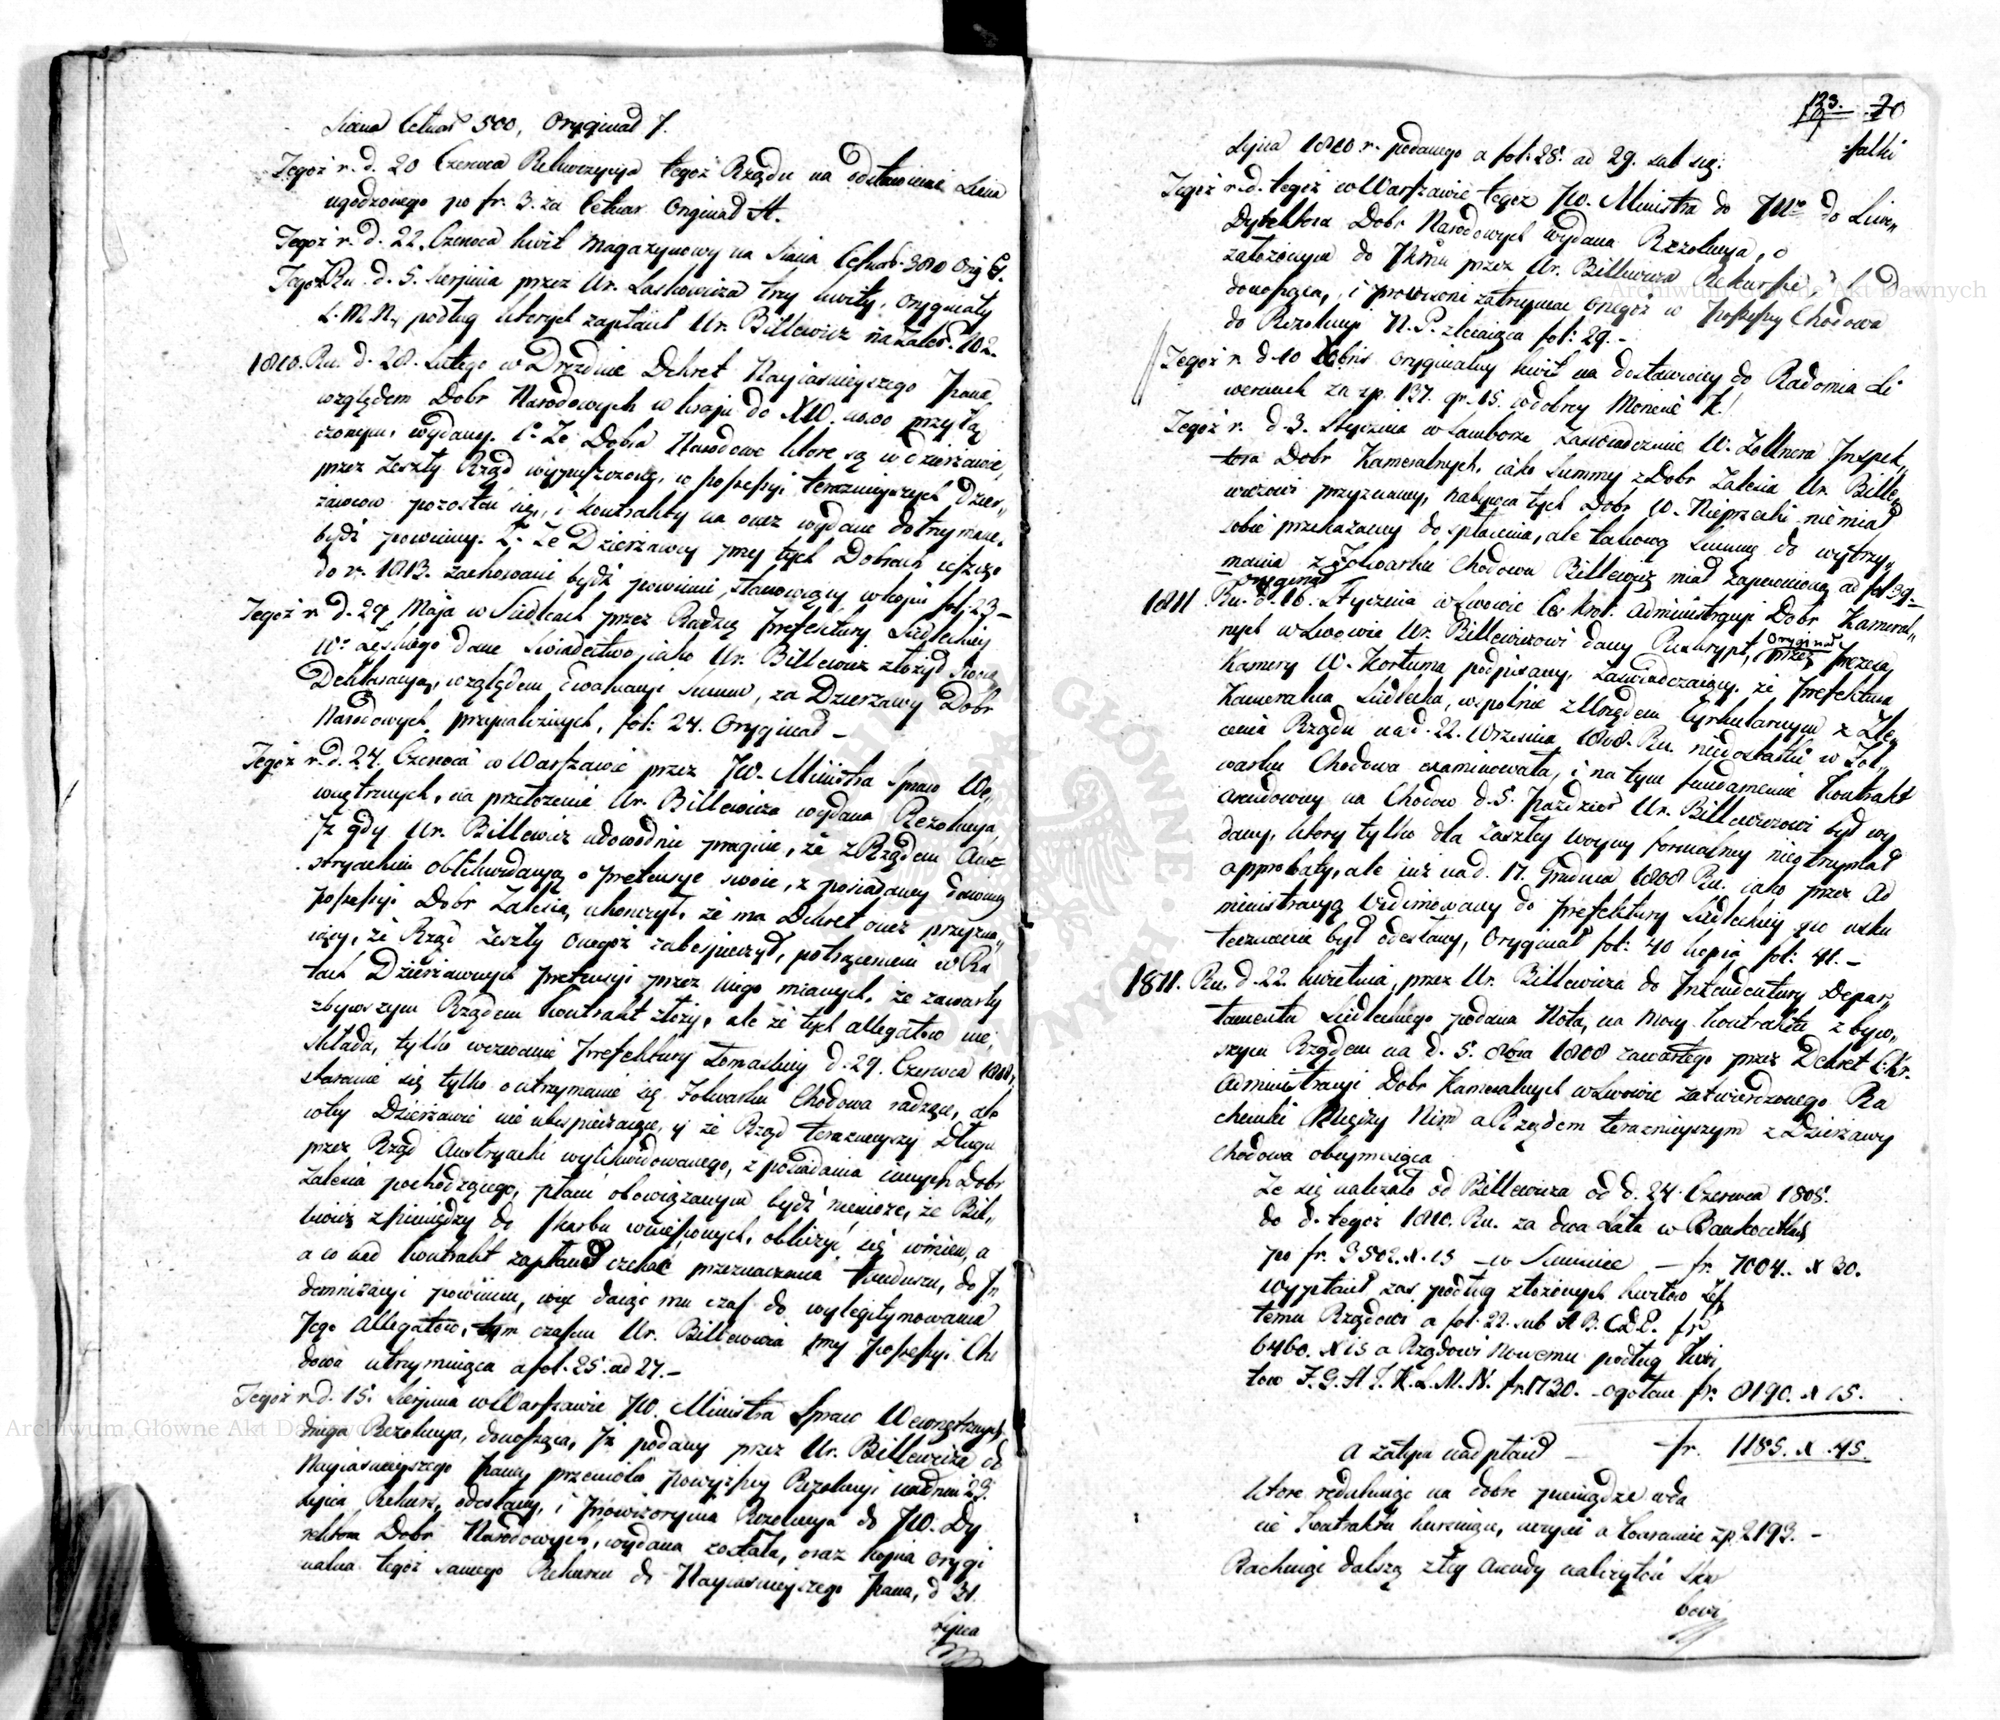 Siana Cetnar. 500, Oryginał J.
Tegoż r. d. 20 Czerwca Rekwizycya tegoż Rządu na odstawienie Siana
ugodzonego po fr. 3. za Cetnar Oryginał H.
Tegoż r. d. 22. Czerwca kwit Magazynowy na Siana Cetnar. 3810 Oryg
Tegoż Ru. d. 5. Sierpnia przez Ur. Laskowicza trzy kwity, Oryginały
L. M. N., podług których zapłacił Ur. Billewicz na Zales. 102.
1810. Ru. d. 28. Lutego w Drezdnie Dekret Nayiasnieyszego Pana
względem Dobr Narodowych w kraju do XW. przyłą
czonym, wydany. 1o Że Dobra Narodowe które są w dzierżawie,
przez zeszły Rząd wypuszczone, w possessyi teraznieyszych Dzier„
żawcow pozostać się, i kontrakty na onez wydane dotrzymane,
bydź powinny. 2o Że Dzierżawcy przy tych Dobrach ieszcze
do r. 1813. zachowani bydź powinni, stanowiący w kopii fol: 23 –
Tegoż r. d. 29 Maja w Siedlcach przez Radzcę Prefektury Siedleckiey
dane Swiadectwo jako Ur. Billewicz złożył Swoią
Deklaracyą, względem Ewaluacyi Summ, za Dzierżawy Dobr
Narodowych przynależnych, fol: 24. Oryginał –
Tegoż r. d. 24. Czerwca w Warszawie przez JW. Ministra Spraw We„
wnętrznych, na przełożenie Ur. Billewicza wydana Rezolucya,
Iż gdy Ur. Billewicz udowodnić pragnie, że z Rządem Au„
stryackim oblikwidacyą o pretensye swoie, z posiadaney dawniey
possessyi Dobr Zalesia, ukonczył, że ma Dekret onez przyzna„
iący, że Rząd zeszły onegoż zabespieczył, potrąceniem w Ra
tach Dzierżawnych pretensyi przez niego mianych, że zawarty
zbywszym Rządem kontrakt złoży, ale że tych allegatow nie
składa, tylko wezwanie Prefektury Tomaskiey d. 29. Czerwca 1808,
staranie się tylko o utrzymanie się Folwarku Chodowa radzące, ale
woley Dzierżawie nie ubespieczaiące, y że Rząd teraznieyszy Długu
przez Rząd Austryacki wylikwidowanego, z posiadania innych Dobr
Zalesia pochodzącego, płacić obowiązanym bydź niemoże, że Bil„
lewicz z pieniędzy do Skarbu wniesionych, obliczyć się winien, a
a co nad kontrakt zapłacił czekać przeznaczenia funduszu, do In
demnizacyi powinien, więc daiąc mu czas do wylegitymowania
Jego Allegatow, tym czasem Ur. Billewicza przy Possessyi Cho
dowa utrzymuiąca a fol. 25. ad 27. –
Tegoż r. d. 15. Sierpnia w Warszawie JW. Ministra Spraw Wewnętrznych
druga Rezolucya, donosząca, Iż podany przez Ur. Billewicza do
Nayiasnieyszego Pana przeciwko powyższey Rezolucyi na dniu 29.
Lipca Rekurs, odesłany, i prowizoryina Rezolucya do JW. Dy
rektora Dobr Narodowych, wydana została, oraz kopia orygi
nalna tegoż samego Rekursu do Nayiasnieyszego Pana, d 31.
Lipca
123. 20
Lipca 1810 r. podanego a fol: 28. ad 29. sub
Tegoż r. d. tegoż w Warszawie tegoż JW. Ministra do JW.
Dyrektora Dobr Narodowych wydana Rezolucya, o
założonym do przez Ur. Billewicza Rekursie,
donosząca, i prowizoni zatrzymać onegoż w Possessyi Chodowa
do Rezolucyi N. P. zlecaiąca fol: 29. –
Tegoż r. d. 10 Xbris Oryginalny kwit na dostawioney do Radomia
za zp. 137. gr. 15. w dobrey Monecie K.
Tegoż r. d. 3. Stycznia w Samborze Zaswiadczenie W. Zollnera Inspek„
tora Dobr Kameralnych, jako Summy z Dobr Zalesia Ur. Bille„
wiczowi przyznaney, nabywca tych Dobr W. Nieprzecki nie miał
sobie przekazaney do spłacenia, ale takową Summę do wytrzy„
mania z Folwarku Chodowa Billewicz miał zapewnioną ad fol: 39. –
oryginał
1811. Ru. d. 16. Stycznia w Lwowie Ces. Krol. Administracyi Dobr Kameral„
nych w Lwowie Ur. Billewiczowi dany Reskrypt, Oryginał przez Prezesa
Kamery W. Kortuma podpisany, Zaswiadczaiący, że Prefektura
Kameralna Siedlecka, wspolnie z Urzędem Cyrkularnym z Zle„
cenia Rządu na d. 22. Wrzesnia 1808. Ru. niedostatki w Fol„
warku Chodowa examinowała, i na tym fundamencie Kontrakt
arendowny na Chodow d. 5. Pazdzier Ur. Billewiczowi był wy
dany, ktory tylko dla zaszłey woyny formalney nie otrzymał
approbaty, ale już na d. 17. Grudnia 1808 Ru. jako przez Ad
ministracyą widimowany do Prefektury Siedleckiey po usku
tecznienie był odesłany, Oryginał fol: 40 kopia fol: 41. –
1811. Ru. d. 22. kwietnia, przez Ur. Billewicza do Intendentury Depar„
tamentu Siedleckiego podana Nota, na mocy kontraktu z byw„
szym Rządem na d. 5. 8bra 1808 zawartego przez Dekret C. Kr.
Administracyi Dobr Kameralnych w Lwowie zatwierdzonego Ra
chunki Między Nim a Rządem teraznieyszym z Dzierżawy
Chodowa obeymuiąca
Że się należało od Billewicza od d. 24 Czerwca 1808.
do d. tegoż 1810. Ru. za dwa Lata w Bankocetlach
po fr. 3502. X. 15 – w Summie – fr. 7004. X 30.
Wypłacił zas podług złożonych kwitow Zesz
temu Rządowi a fol: 22. sub A. B. C. D. E. fr
6460. X 15 a Rządowi Nowemu podług kwi
tow F. G. H. I. K. L. M. N. fr. 1730. – ogołem fr. 8190. X 15.
A zatym nadpłacił – fr. 1185. X. 45.
ktore redukuiąc na dobre pieniądze
Kontraktu kurencyi, uczyni a Louranie zp. 2193. –
Rachuiąc dalszą z tey arendy należytość Skar
bowi